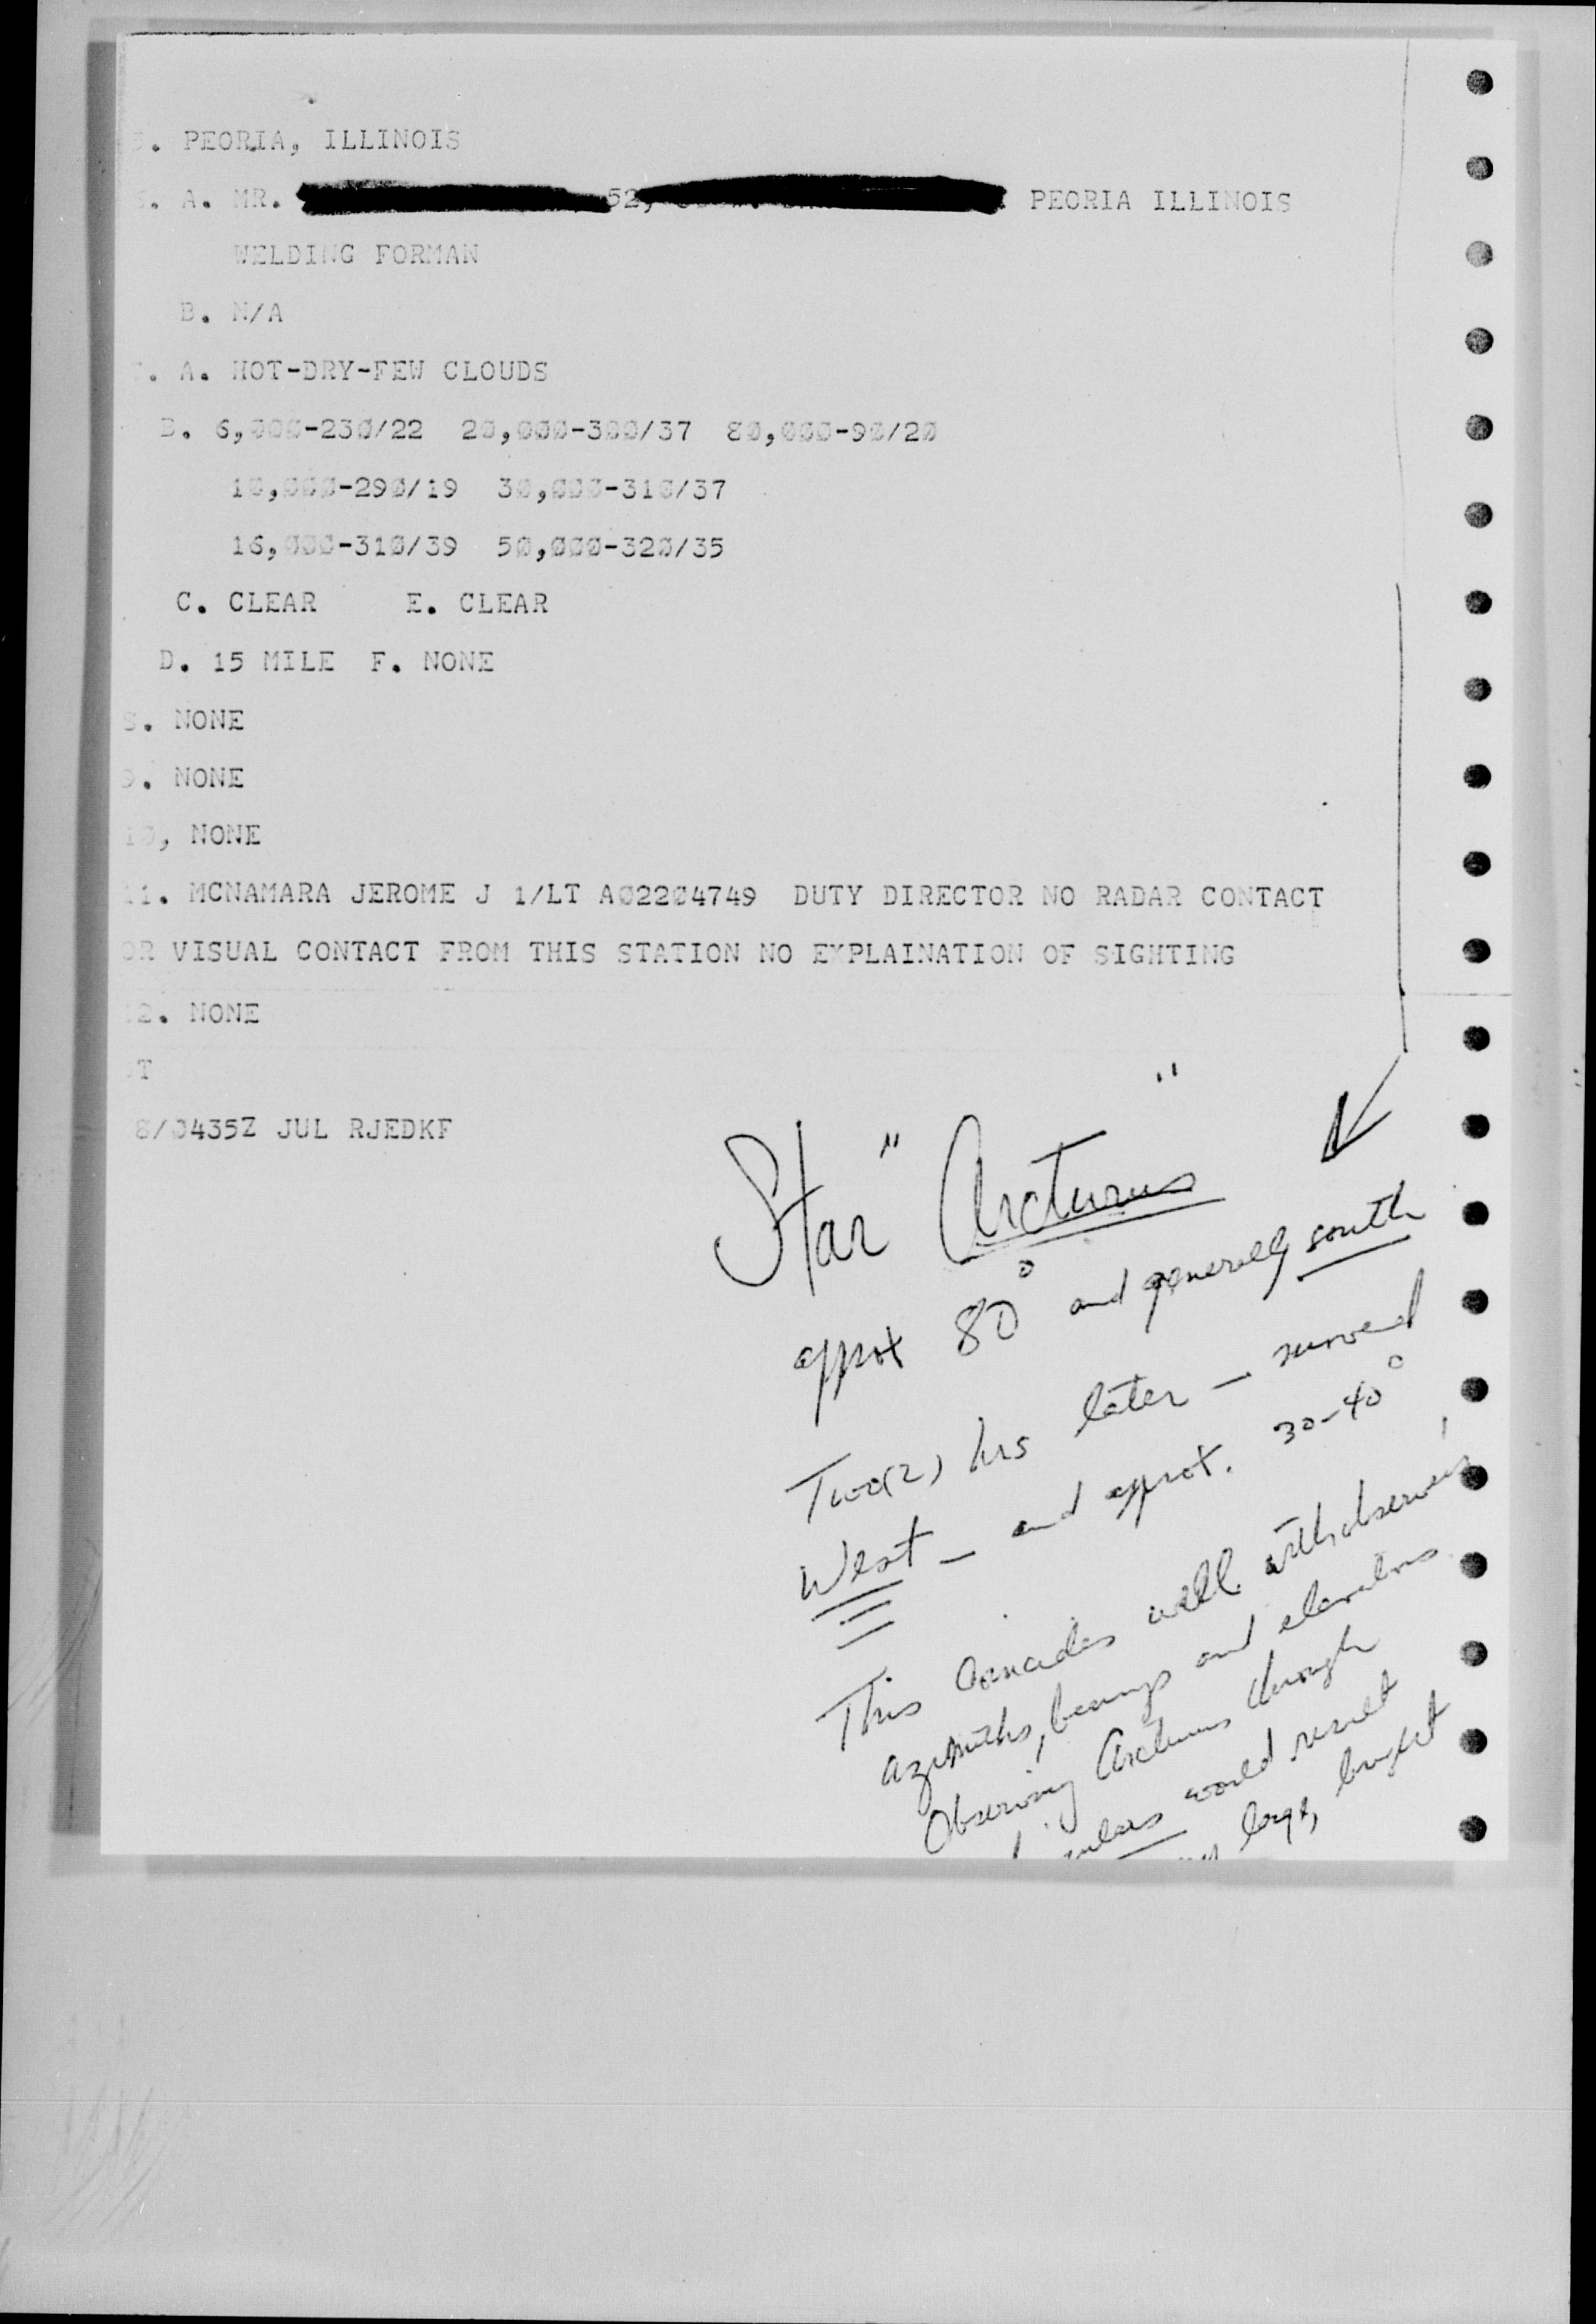 5. PEORIA, ILLINOIS
6. A. MR. 52, PEORIA ILLINOIS
WELDING FORMAN
B. N/A
7. A. HOT-DRY-FEW CLOUDS
B. 6,000-230/22 20,000-300/37 80,000-90/20
10,000-290/19 30,000-310/37
16,000-310/39 50,000-320/35
C. CLEAR E. CLEAR
D. 15 MILE F. NONE
8. NONE
9. NONE
10, NONE
11. MCNAMARA JEROME J 1/LT AO2204749 DUTY DIRECTOR NO RADAR CONTACT
OR VISUAL CONTACT FROM THIS STATION NO EXPLAINATION OF SIGHTING
12. NONE
T
8/0435Z JUL RJEDKF
Star "Arcturus"
approx 80° and generally south
Two(2) hrs later - moved
West - and approx. 30-40°
This coincides well with observers'
azimuths, bearings and elevations
Observing Arcturus through
would result
large, bright